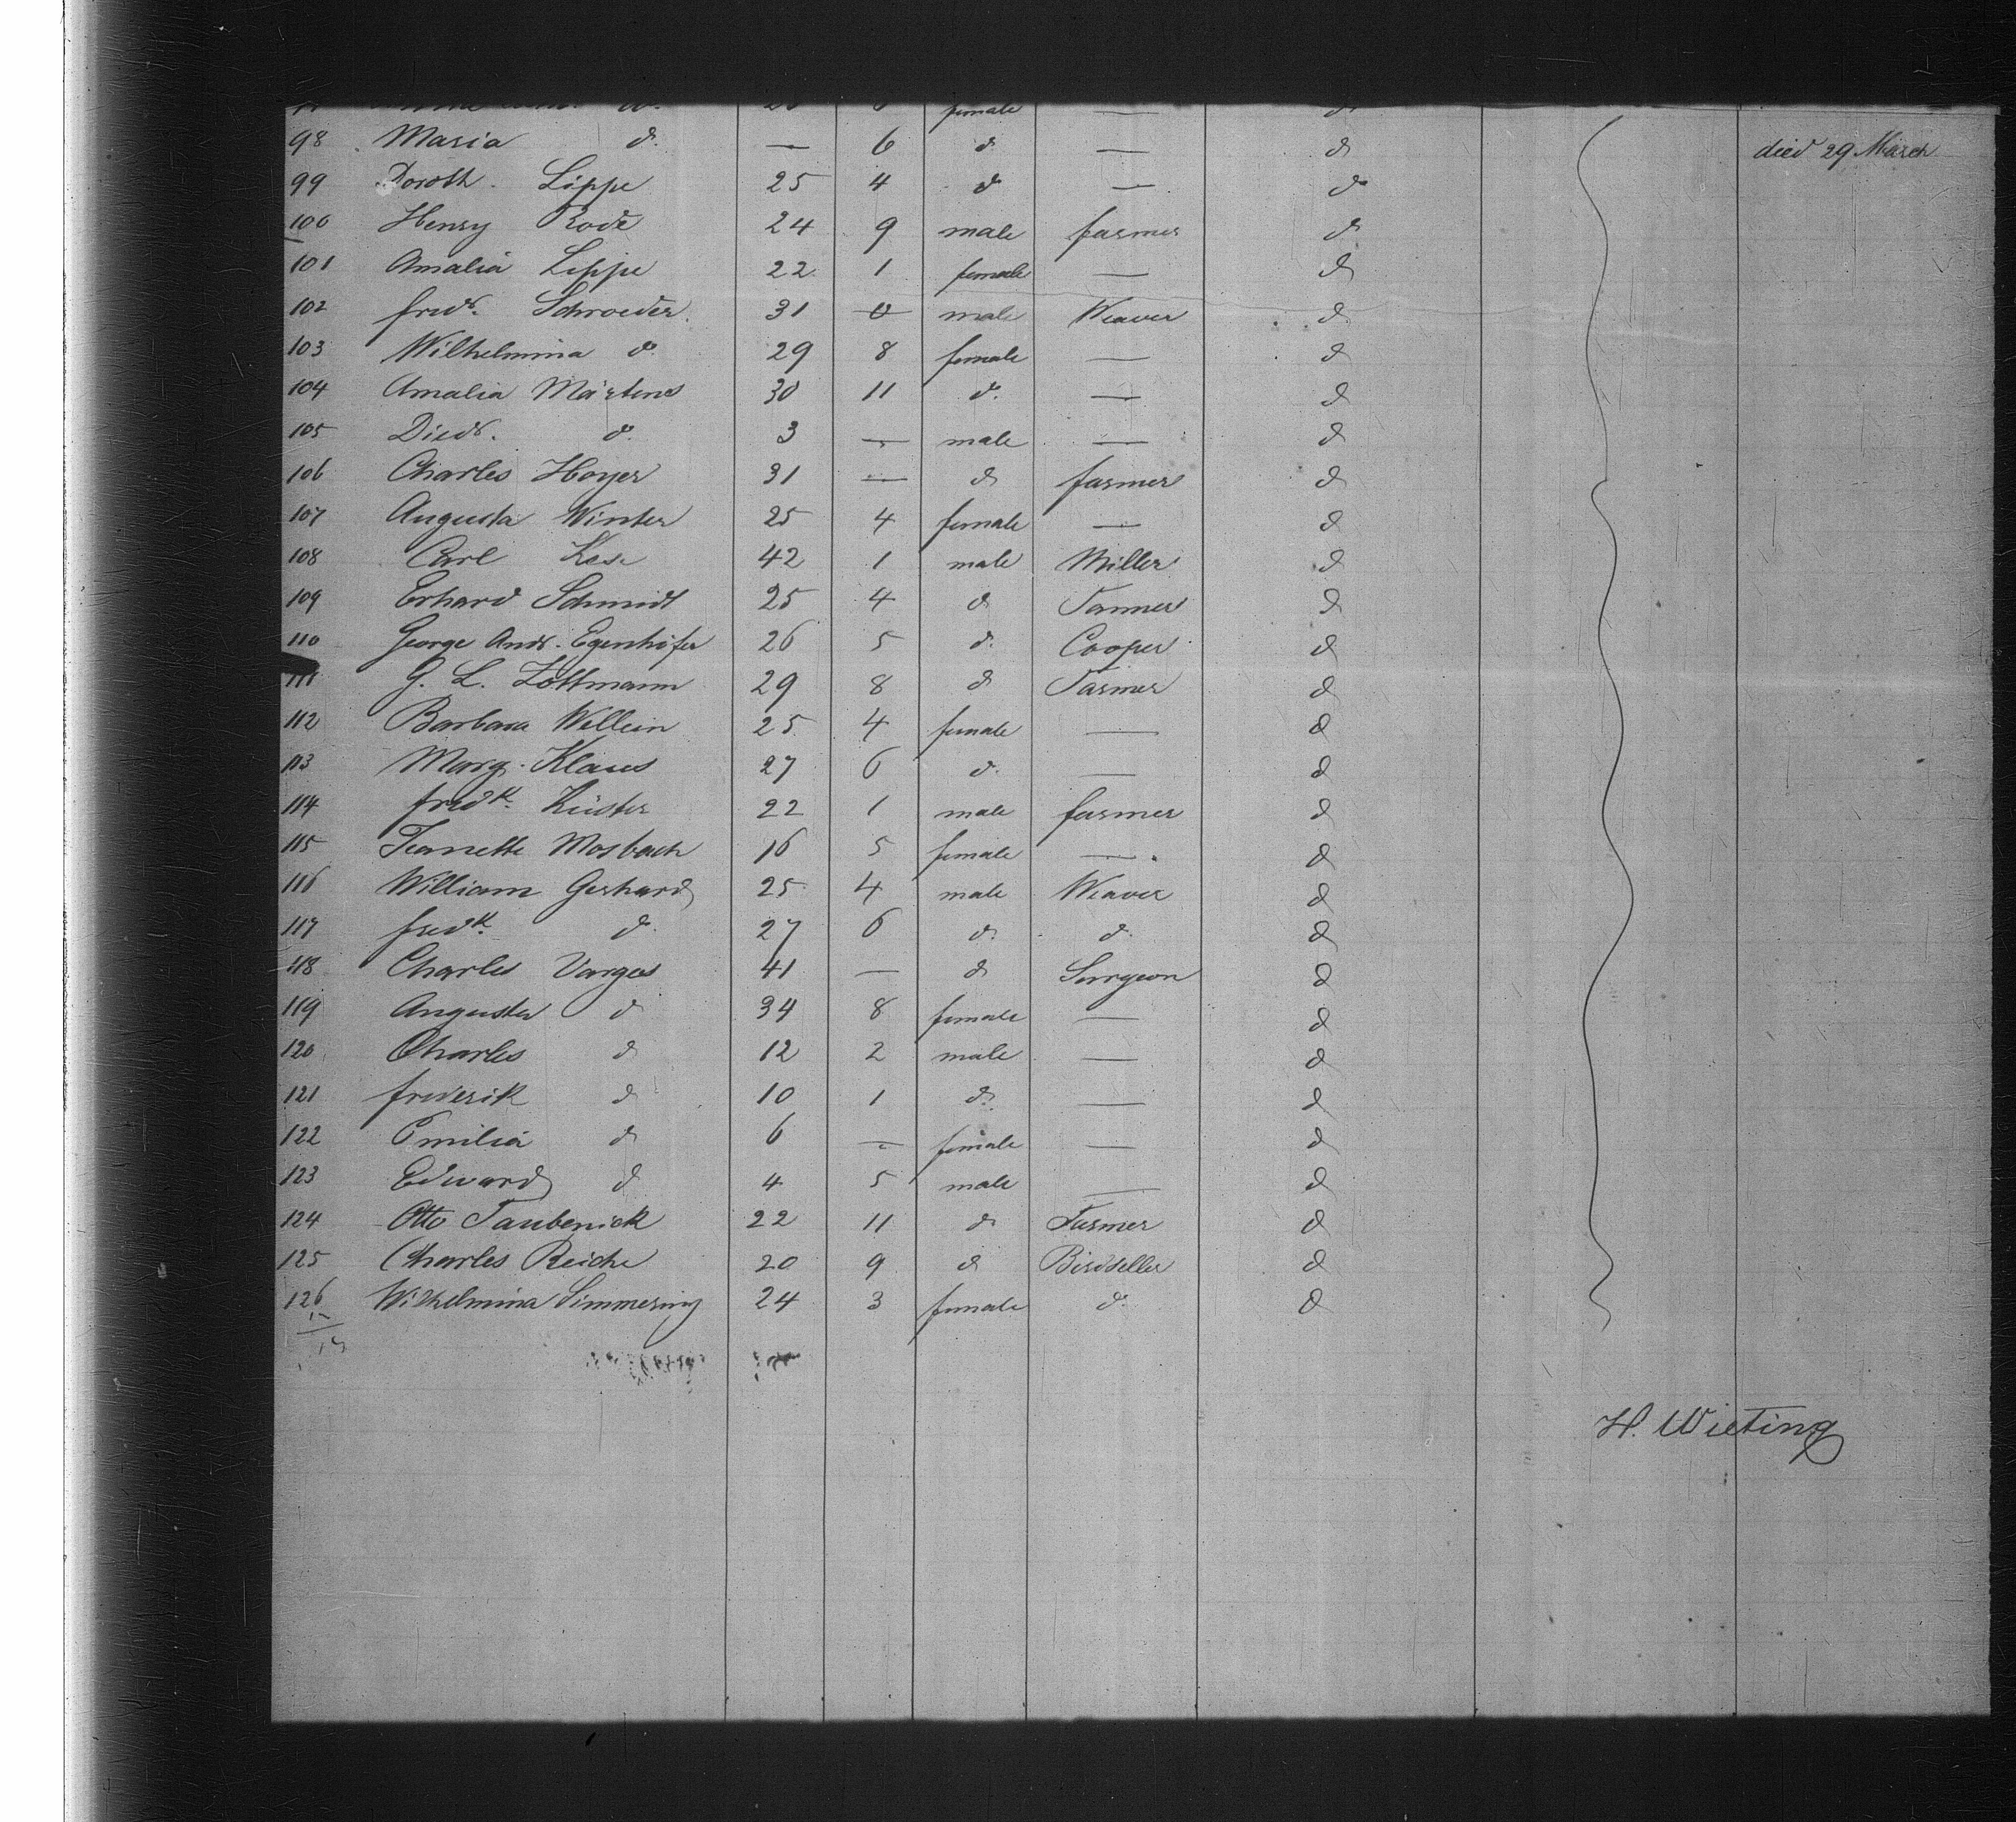 female —
98 Maria do. — 6 do — do died 29 March
99 Doroth. Lippe 25 4 do — do
100 Henry Rode 24 9 male farmer do
101 Amalia Lippe 22 1 female — do
102 fredr. Schroeder 31 0 male Weaver do
103 Wilhelmina do 29 8 female — do
104 Amalia Märtens 30 11 do. — do
105 Diedr. do. 3 — male — do
106 Charles Hoyer 31 — do farmer do
107 Augusta Winter 25 4 female — do
108 Carl Kese 42 1 male Miller do
109 Erhard Schmidt 25 4 do Tanner do
110 George Andr. Egenhöfer 26 5 do. Cooper do
111 G. L. Zottmann 29 8 do Farmer do
112 Barbara Wellein 25 4 female — do
113 Marg. Klaus 27 6 do. — do
114 fredk. Küster 22 1 male farmer do
115 Jeanette Mosbach 16 5 female — do
116 William Gerhard 25 4 male Weaver do
117 fredk. do. 27 6 do. do. do
118 Charles Varges 41 — do Surgeon do
119 Augusta do 34 8 female — do
120 Charles do 12 2 male — do
121 frederik do 10 1 do. — do
122 Emilia do 6 — female — do
123 Edward do 4 5 male — do
124 Otto Taubenick 22 11 do Farmer do
125 Charles Reiche 20 9 do Birdseller do
126 Wilhelmina Simmering 24 3 female do. do
H. Wieting